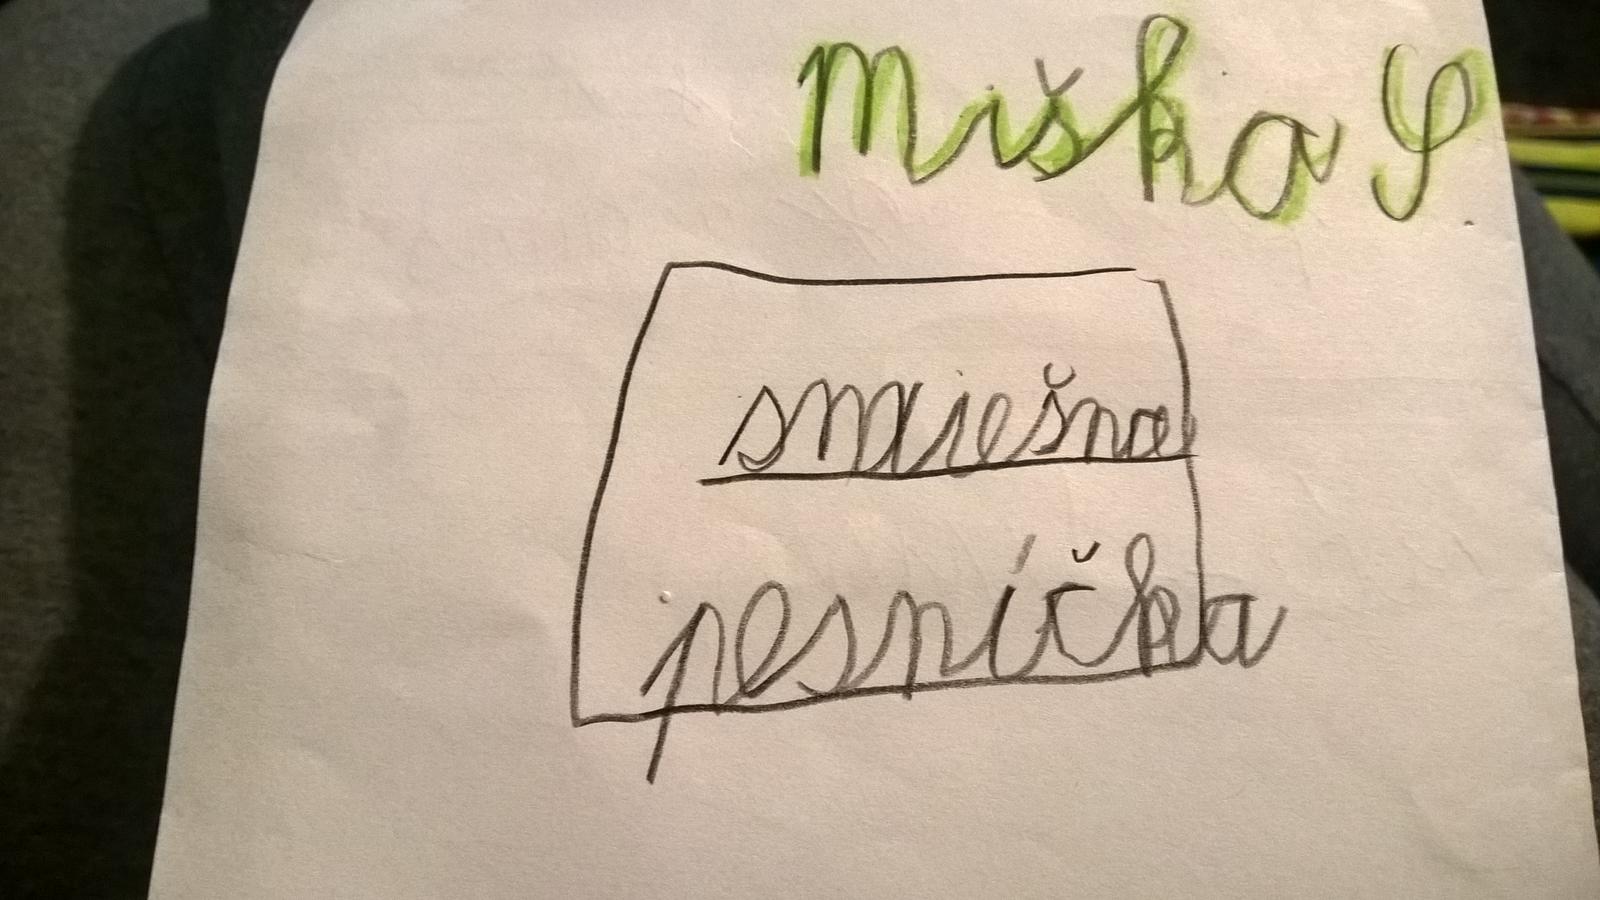 Miška S.
smiešna
pesníčka